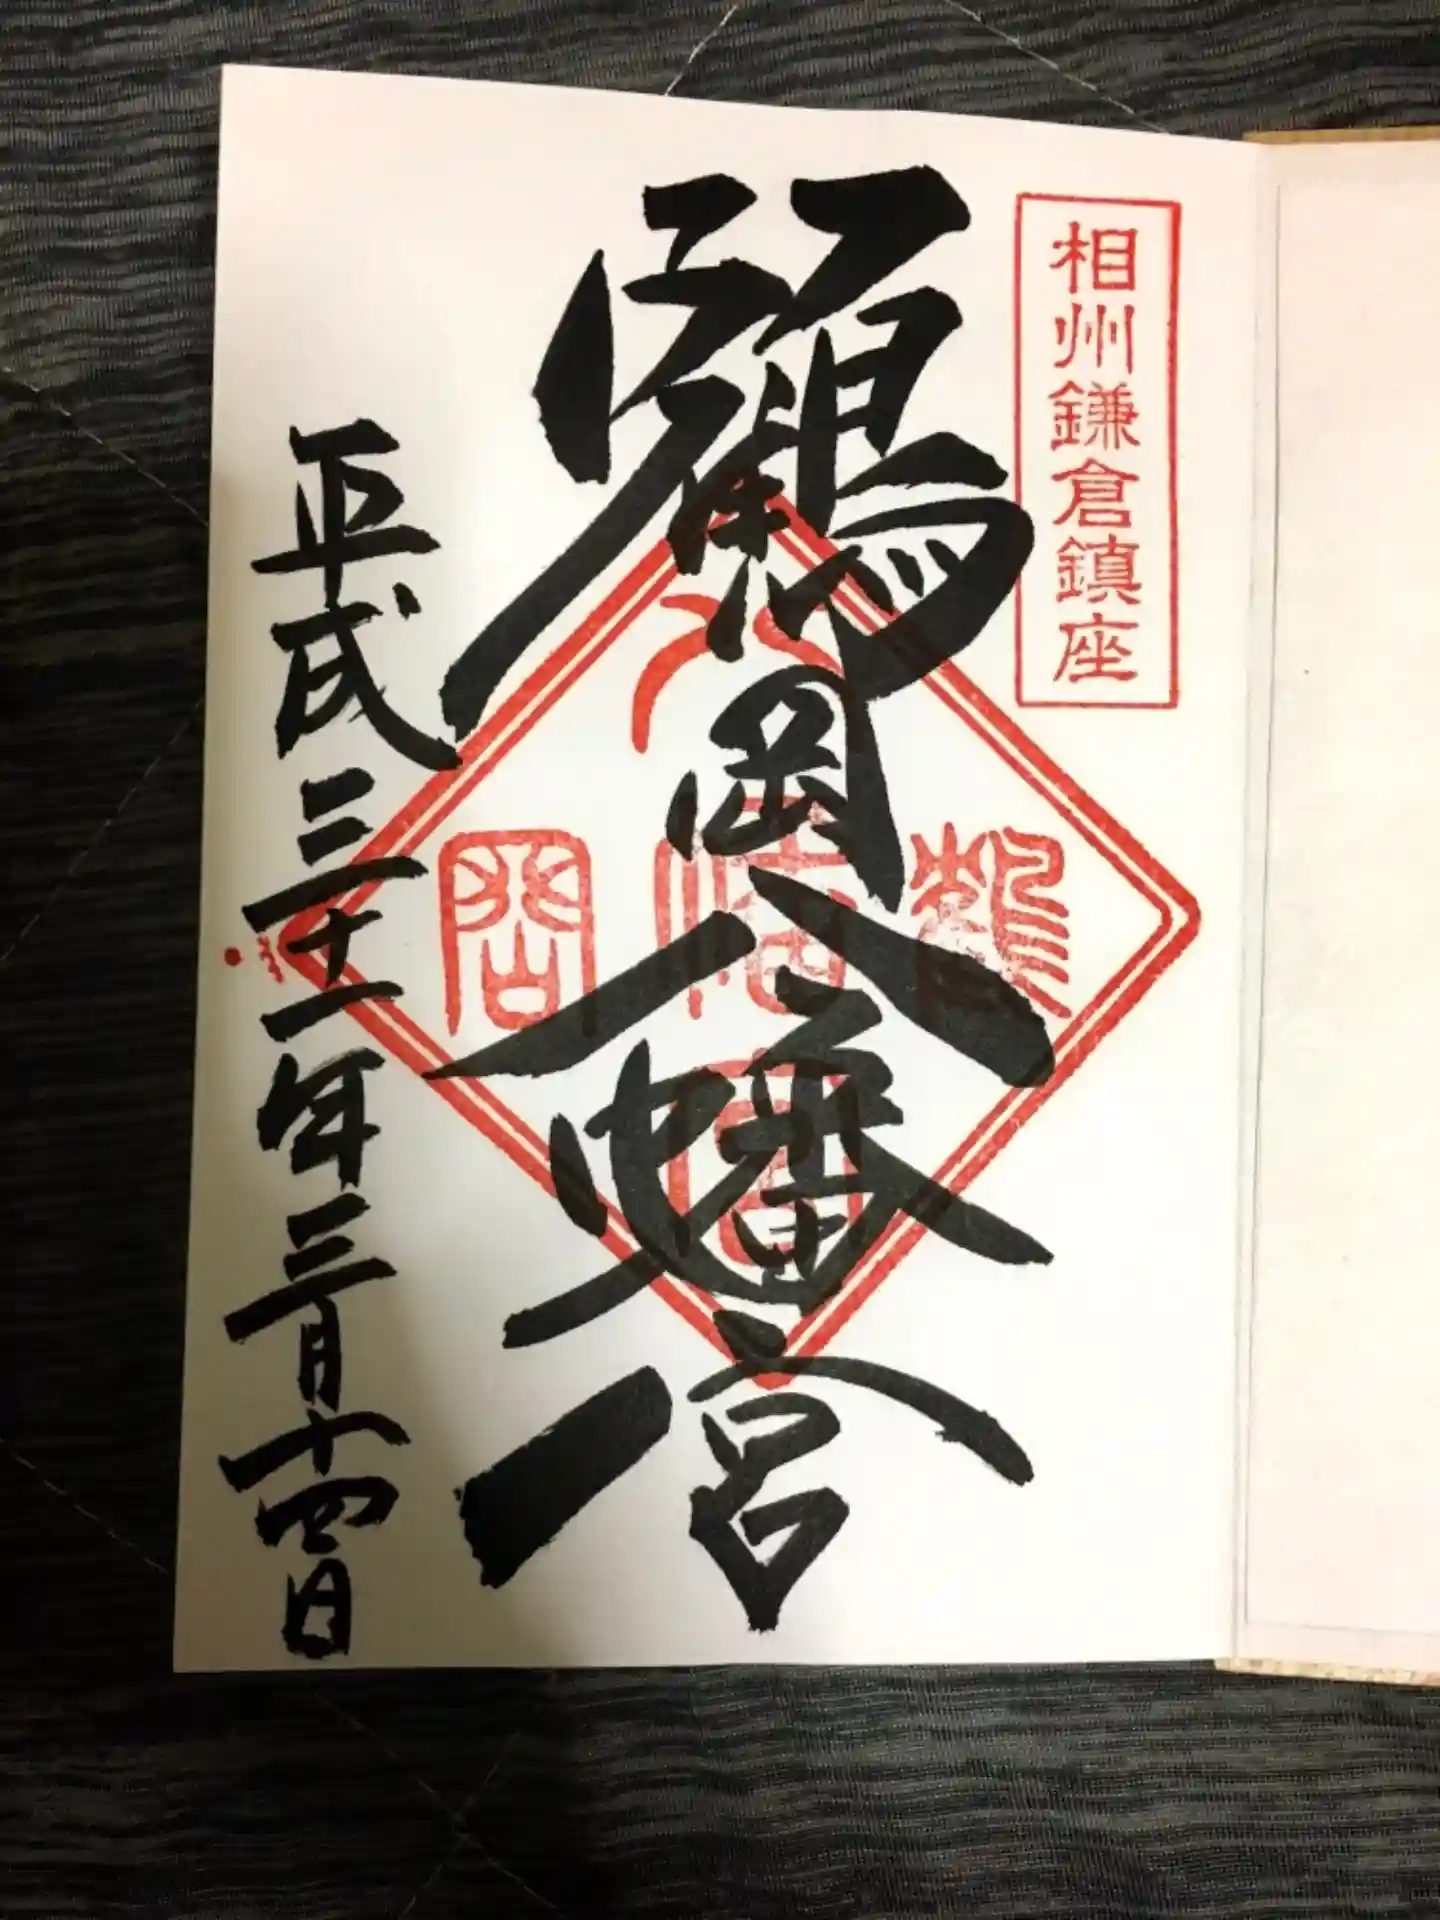 相州鎌倉鎮座
鶴岡八幡宮
鶴
八幡宮
岡
平成三十一年三月十四日